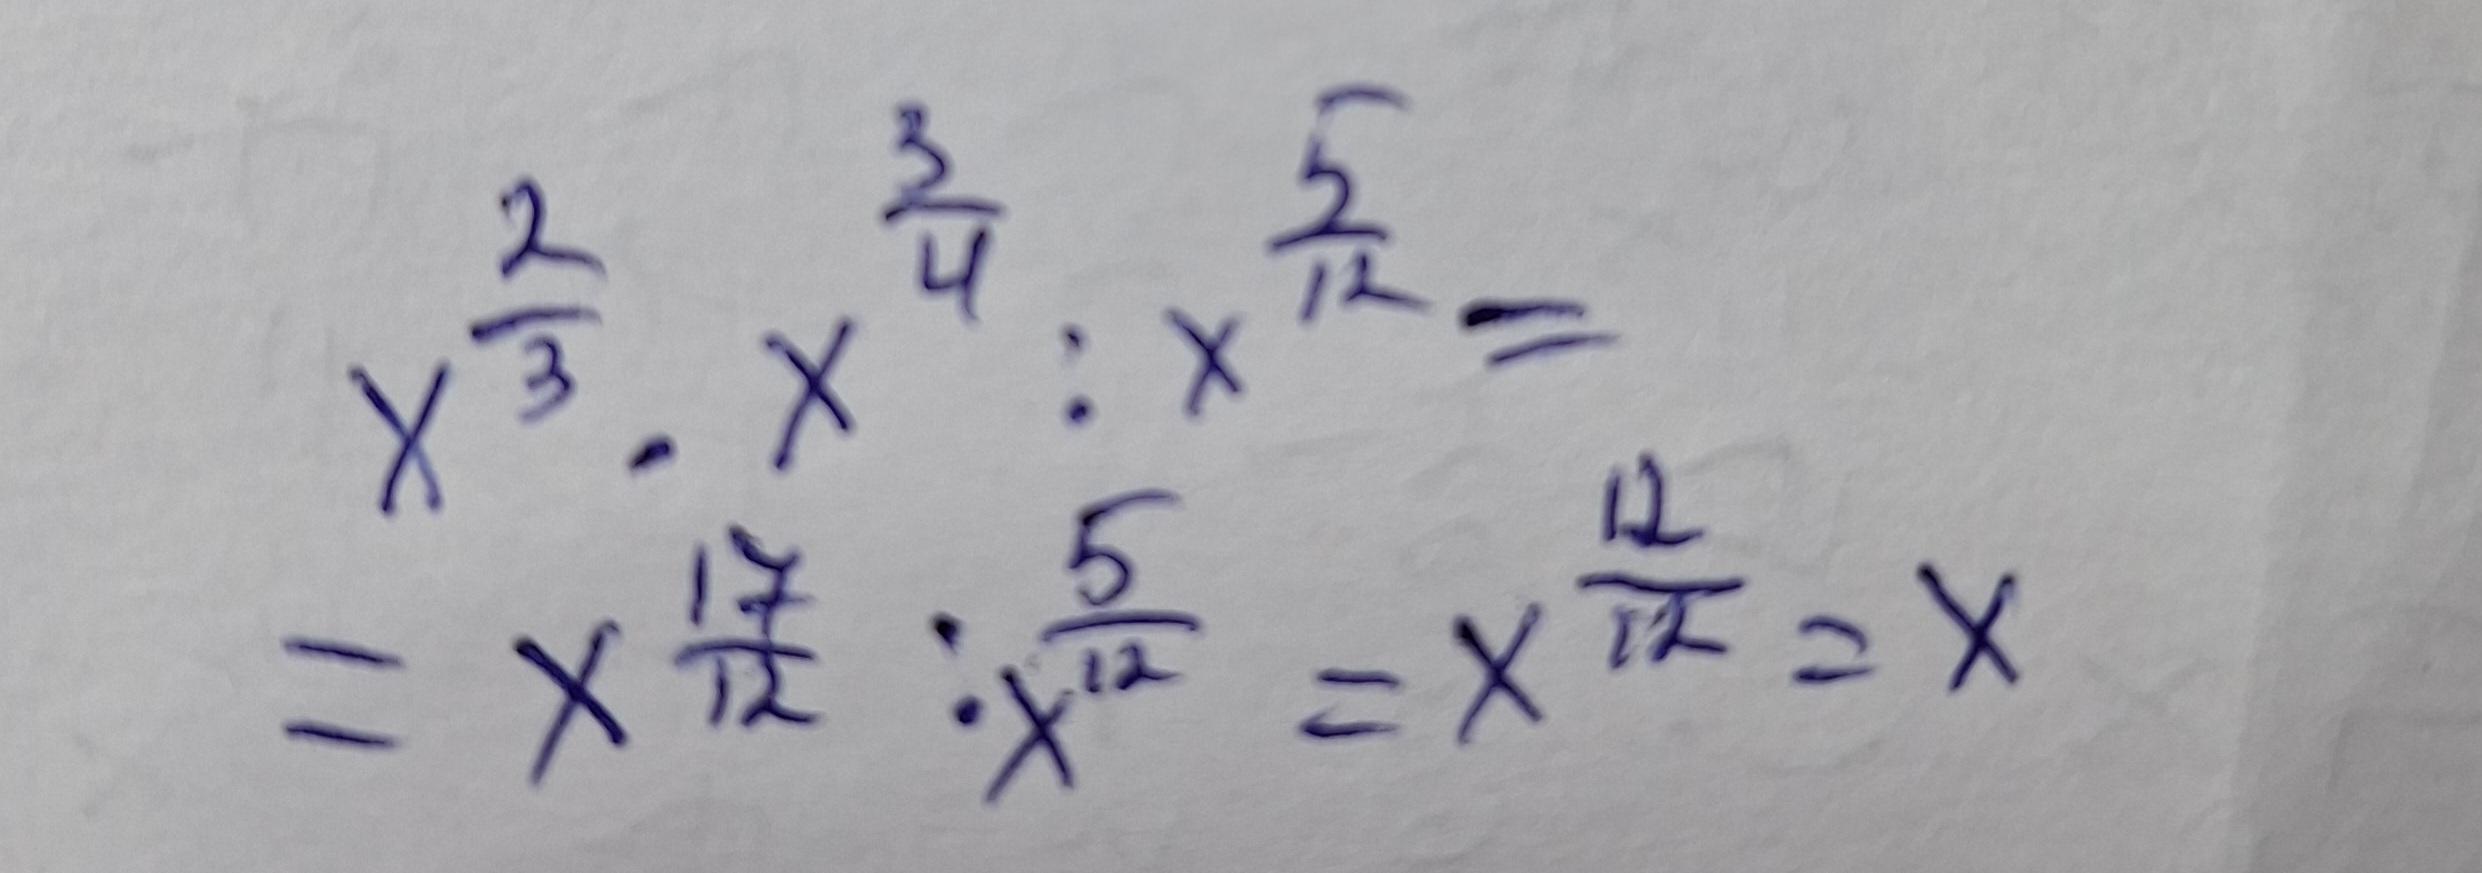 x^{\frac{2}{3}} \cdot x^{\frac{3}{4}} : x^{\frac{5}{12}} =
= x^{\frac{17}{12}} : x^{\frac{5}{12}} = x^{\frac{12}{12}} = x